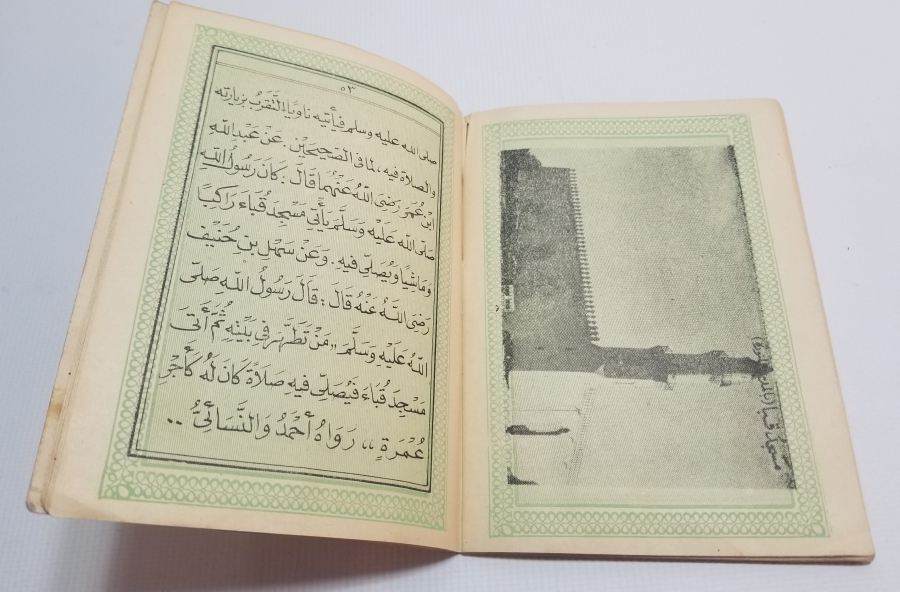 ٥٣
صلى الله عليه وسلم فيأتيه ناويا التَّقَرُّبَ بزيارته
والصلاة فيه، لما فى الصَّحِيحَيْنِ. عَنْ عَبْدِ اللهِ
ابْنِ عُمَرَ رَضِىَ اللهُ عَنْهُمَا قَالَ: كَانَ رَسُولُ اللهِ
صَلَّى اللهُ عَلَيْهِ وَسَلَّمَ يَأْتِى مَسْجِدَ قُبَاءَ رَاكِبًا
وَمَاشِيًا وَيُصَلِّى فِيهِ. وَعَنْ سَهْلِ بْنِ حُنَيْفٍ
رَضِىَ اللهُ عَنْهُ قَالَ: قَالَ رَسُولُ اللهِ صَلَّى
اللهُ عَلَيْهِ وَسَلَّمَ ,,مَنْ تَطَهَّرَ فِى بَيْتِهِ ثُمَّ أَتَى
مَسْجِدَ قُبَاءَ فَيُصَلِّى فِيهِ صَلَاةً كَانَ لَهُ كَأَجْرِ
عُمْرَةٍ,, رَوَاهُ أَحْمَدُ وَالنَّسَائِىُّ ..
مسجد قباء